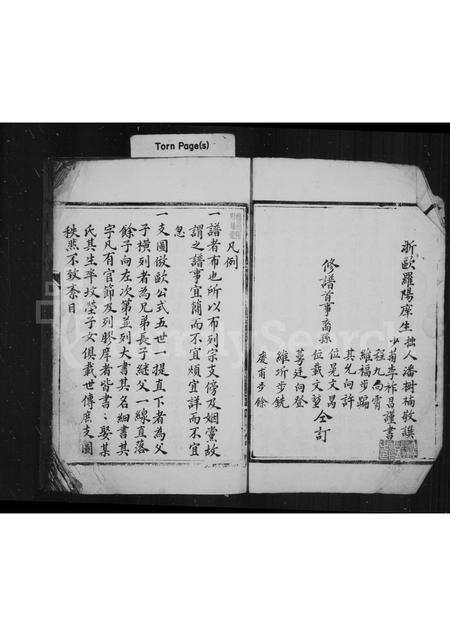 Torn Page(s)
浙歐羅陽庠生拙人潘樹補敬譔
少蘭年祚昌謹書
修譜首事裔孫
程九向霄
維福步踰
其允向許
位冕文昺
位載文塹
全訂
蓦廷向登
維圻步銑
慶甫步餘
凡例
一譜者布也所以布列宗支傍及姻黨故
謂之譜事宜簡而不宜煩宜詳而不宜
忽
一支圖倣歐公式五世一提直下者為父
子橫列者為兄弟長子繼父一線直落
餘子向左次第並列大書其名細書其
字凡有官節及列膠庠者皆書書娶某
氏其生卒坟塋子女俱載世傳庶支圖
秩然不致紊目
FamilySearch